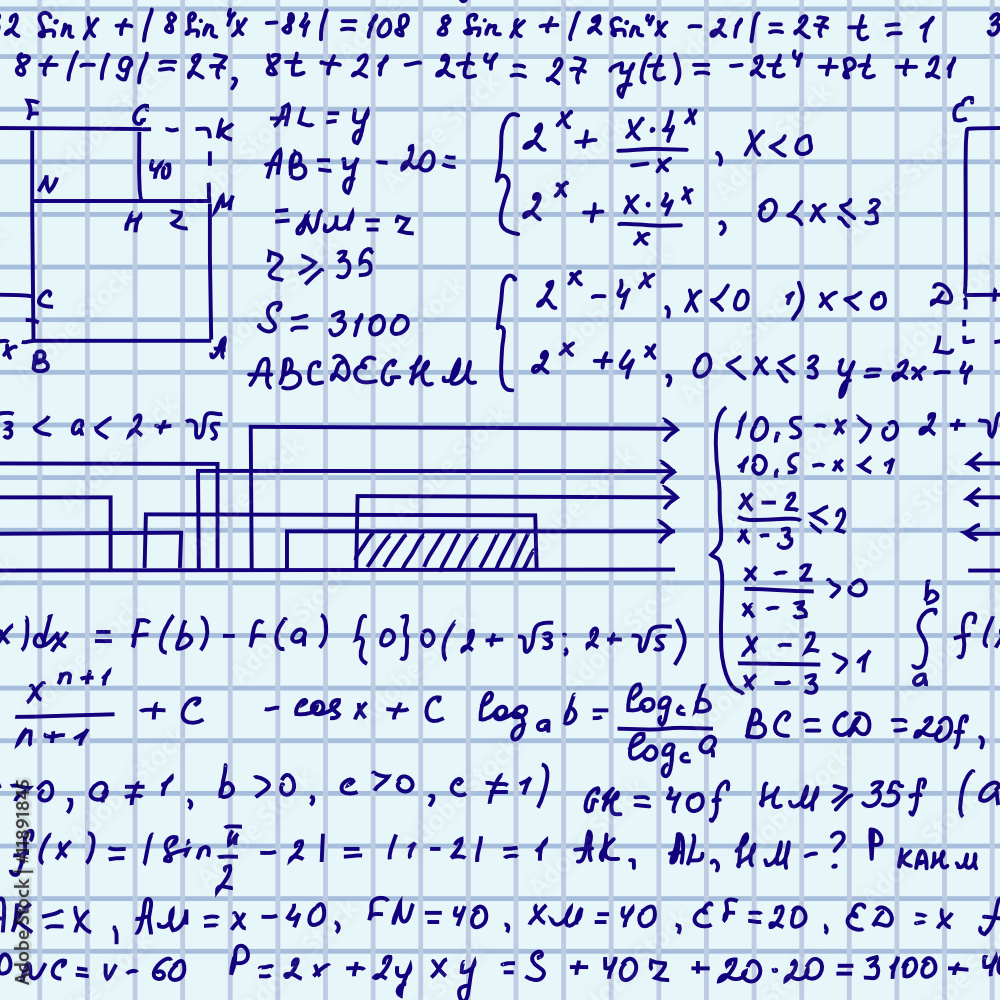 2 Sin x + | 8 Sin⁴x - 84 | = 108 8 Sin x + | 2 Sin⁴x - 21 | = 27 t = 1 3
8 + |-19| = 27, 8t + 21 - 2t⁴ = 27 y(t) = -2t⁴ + 8t + 21
F G K
40
N H Z M
C
x B A
AL = y
AB = y - 20 =
= NM = z
z ⩾ 35
S = 3100
ABCDEGHM
{ 2^x + (x·4^x)/(-x) , x < 0
2^x + (x·4^x)/x , 0 < x ⩽ 3
{ 2^x - 4^x , x < 0 1) x < 0
2^x + 4^x , 0 < x ⩽ 3 y = 2x - 4
C
D
L
√3 < a < 2 + √5
{ 10,5 - x > 0 2 + √
10,5 - x < 1
(x - 2)/(x - 3) ⩽ 2
(x - 2)/(x - 3) > 0
(x - 2)/(x - 3) > 1
x)dx = F(b) - F(a) {0}0(2 + √3; 2 + √5) ∫_a^b f(
x^(n+1)/(n+1) + C - cos x + C log_a b = (log_c b)/(log_c a) BC = CD = 20f,
0, a ≠ 1, b > 0, c > 0, c ≠ 1) GK = 40f HM ⩾ 35f (a
(x) = | Sin π/2 - 2 | = | 1 - 2 | = 1 AK, AL, HM - ? P канм
= x, AM = x - 40, FN = 40, XM = 40, EF = 20, ED = x
C = v - 60 P = 2x + 2y xy = S + 40z + 20·20 = 3100 + 4
Adobe Stock | #11891846